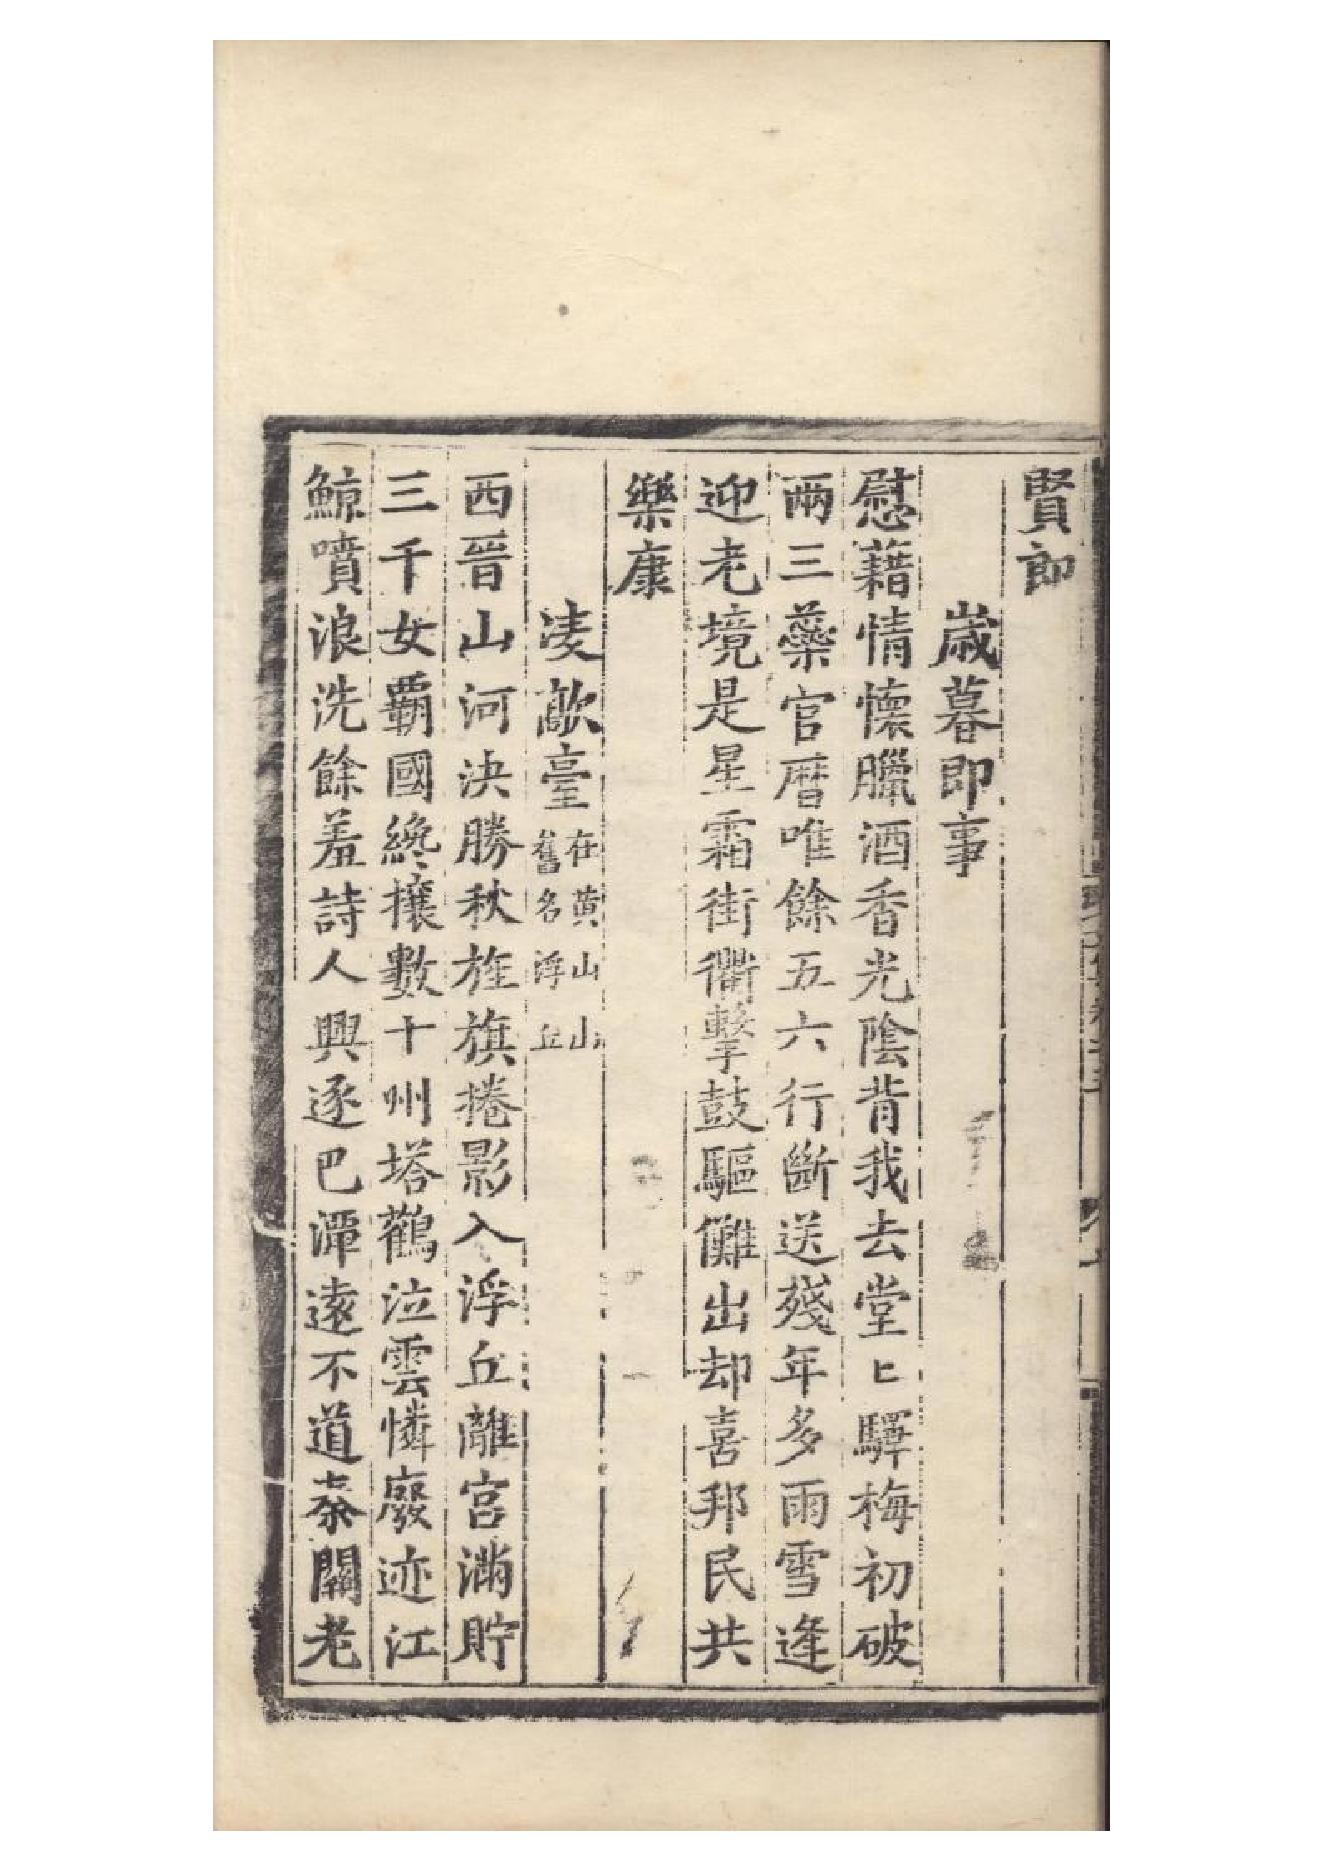 賢郎
歲暮即事
慰藉情懷臘酒香光陰背我去堂〻驛梅初破
兩三蘂官曆唯餘五六行斷送殘年多雨雪逢
迎老境是星霜街衢擊鼓驅儺出却喜邦民共
樂康
凌歊臺在黃山山舊名浮丘
西晉山河決勝秋旌旗捲影入浮丘離宮滿貯
三千女覇國纔攘數十州塔鸛泣雲憐廢迹江
鯨噴浪洗餘羞詩人興逐巴潭遠不道秦關老